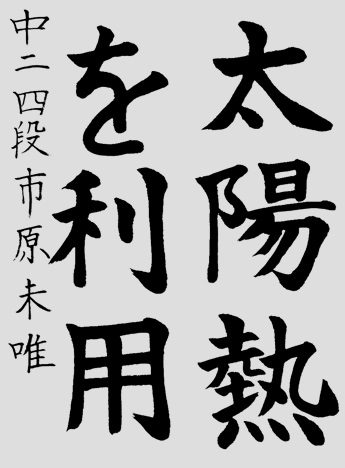 太陽熱
を利用
中二四段市原未唯